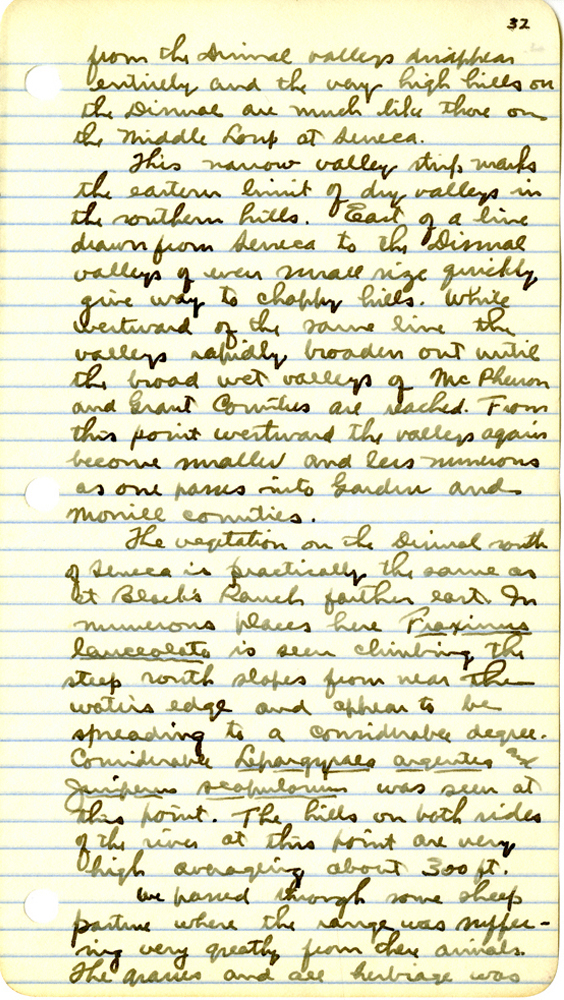 32
from the Dismal valleys disappear
entirely and the very high hills on
the Dismal are much like those on
the Middle Loup at Seneca.
This narrow valley strip marks
the eastern limit of dry valleys in
the southern hills. East of a line
drawn from Seneca to the Dismal
valleys of even small size quickly
give way to choppy hills. While
westward of the same line the
valleys rapidly broaden out until
the broad wet valleys of McPherson
and Grant Counties are reached. From
this point westward the valleys again
become smaller and less numerous
as one passes into Garden and
Morrill counties.
The vegetation on the Dismal south
of Seneca is practically the same as
at Black's Ranch farther east. In
numerous places here Fraxinus
lanceolata is seen climbing the
steep north slopes from near the
waters edge and appear to be
spreading to a considerable degree.
Considerable Lepargyraea argentea and
Juniperus scopulorum was seen at
this point. The hills on both sides
of the river at this point are very
high averageing about 300 ft.
We passed through some sheep
pasture where the range was suffer-
ing very greatly from these animals.
The grasses and all herbiage was